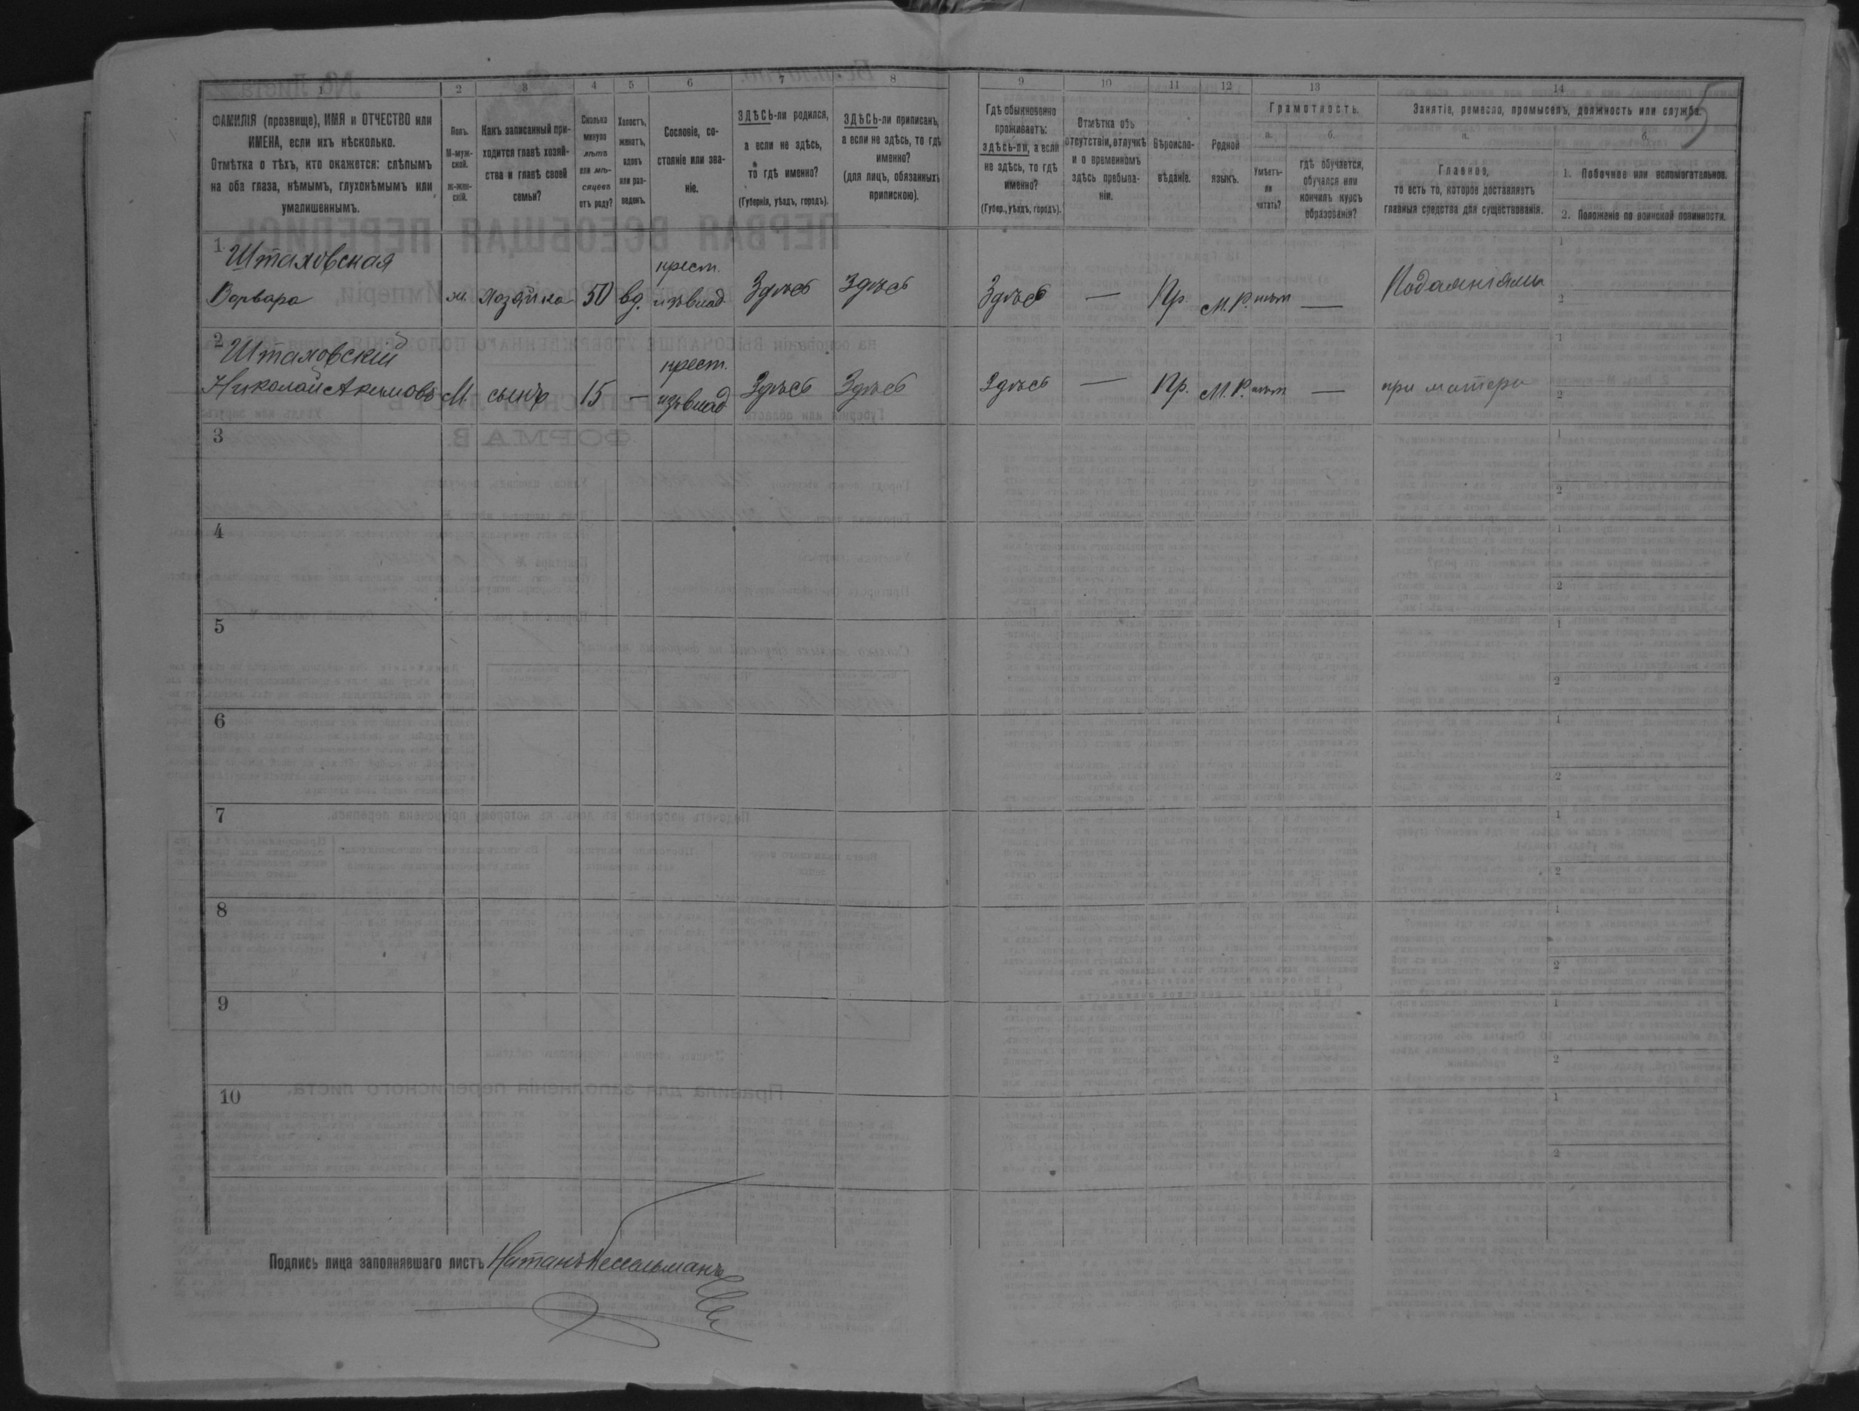 5
1 2 3 4 5 6 7 8 9 10 11 12 13 14
ФАМИЛІЯ (прозвище), ИМЯ и ОТЧЕСТВО или
ИМЕНА, если ихъ нѣсколько.
Отмѣтка о тѣхъ, кто окажется: слѣпымъ
на оба глаза, нѣмымъ, глухонѣмымъ или
умалишеннымъ.
Полъ.
М-муж-
ской.
ж-жен-
скій.
Какъ записанный при-
ходится главѣ хозяй-
ства и главѣ своей
семьи?
Сколько
минуло
лѣтъ
или мѣ-
сяцевъ
отъ роду?
Холостъ,
женатъ,
вдовъ
или раз-
веденъ.
Сословіе, со-
стояніе или зва-
ніе.
ЗДѢСЬ-ли родился,
а если не здѣсь,
то гдѣ именно?
(Губернія, уѣздъ, городъ).
ЗДѢСЬ-ли приписанъ,
а если не здѣсь, то гдѣ
именно?
(для лицъ, обязанныхъ
припискою).
Гдѣ обыкновенно
проживаетъ:
ЗДѢСЬ-ли, а если
не здѣсь, то гдѣ
именно?
(Губер., уѣздъ, городъ).
Отмѣтка объ
отсутствіи, отлучкѣ
и о временномъ
здѣсь пребыва-
ніи.
Вѣроиспо-
вѣданіе.
Родной
языкъ.
Грамотность.
а.
Умѣетъ-
ли
читать?
б.
гдѣ обучается,
обучался или
кончилъ курсъ
образованія?
Занятіе, ремесло, промыселъ, должность или служба.
а.
Главное,
то есть то, которое доставляетъ
главныя средства для существованія.
б.
1. Побочное или вспомогательное.
2. Положеніе по воинской повинности.
1 Штаховская
Варвара ж хозяйка 50 вд. крест.
изъ влад Здѣсь Здѣсь Здѣсь — Пр. М.Р. нѣтъ — Подаяніями
1
2
2 Штаховскій
Николай Акимовъ М. сынъ 15 — крест.
изъ влад Здѣсь Здѣсь Здѣсь — Пр. М.Р. нѣтъ — при матери
1
2
3
1
2
4
1
2
5
1
2
6
1
2
7
1
2
8
1
2
9
1
2
10
1
2
Подпись лица заполнявшаго листъ Натанъ Кесельманъ